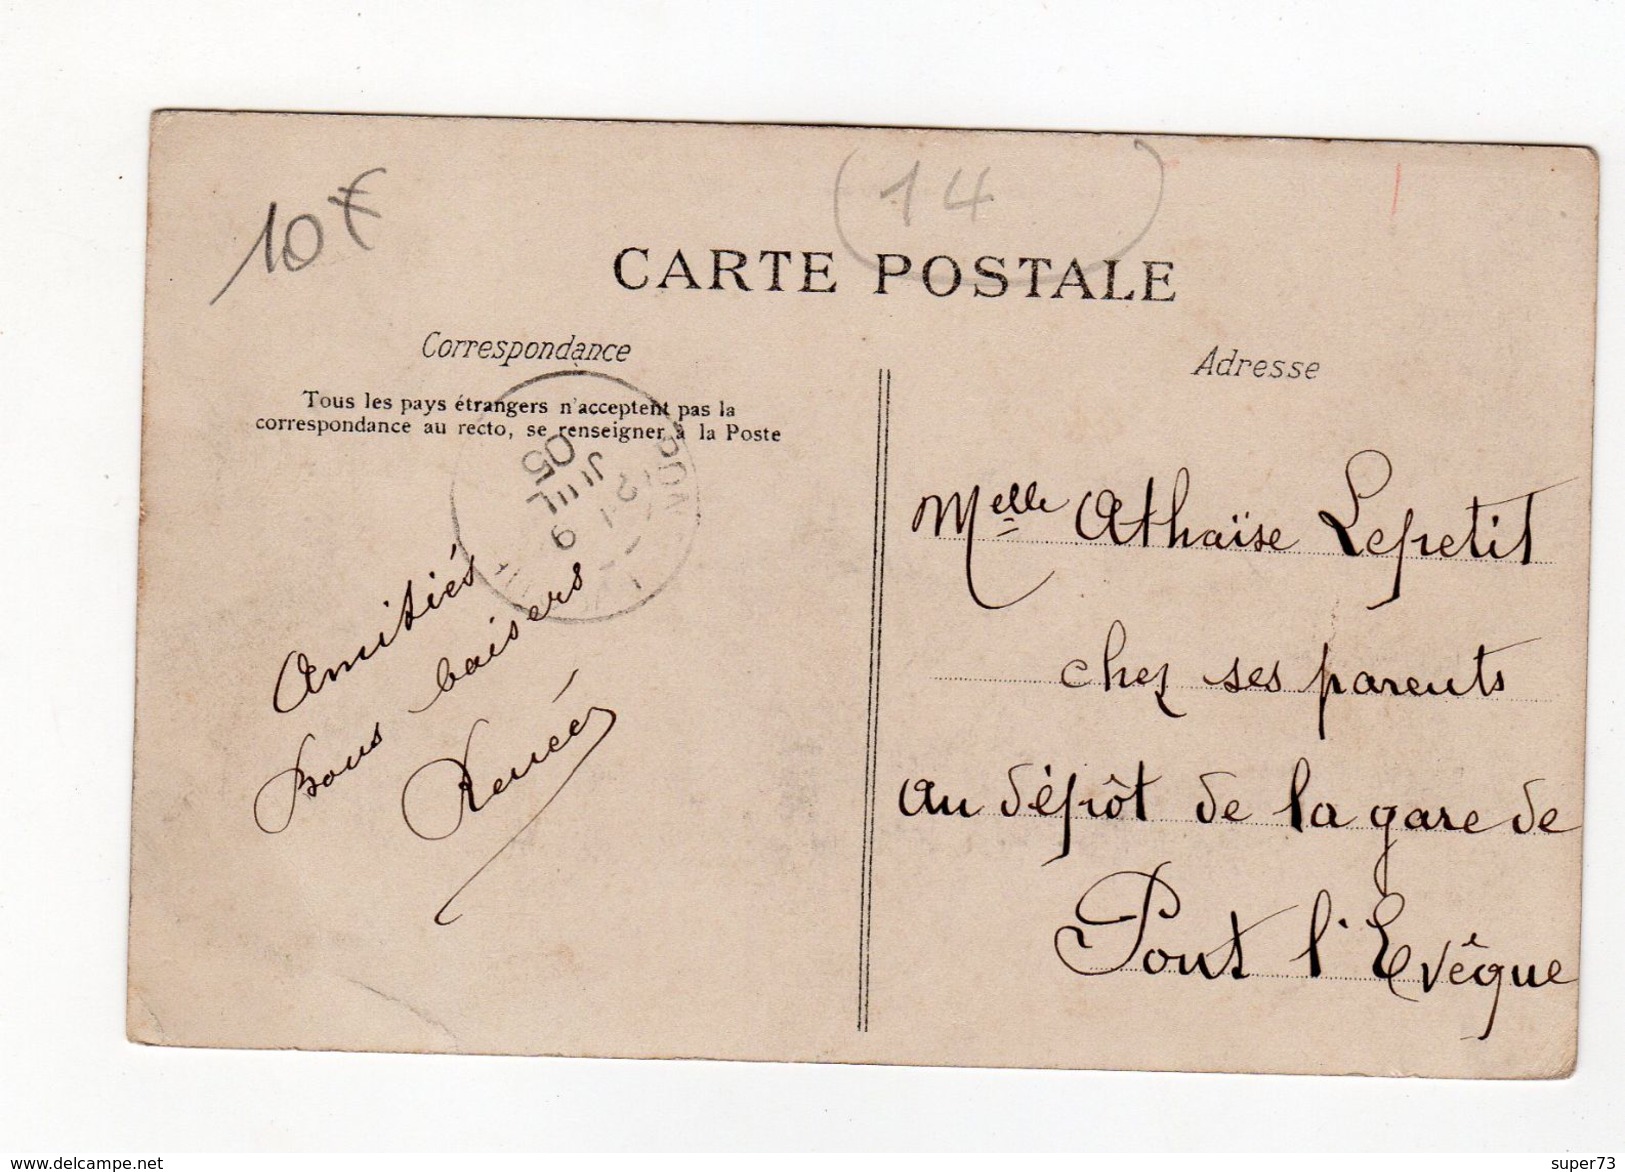 10€
(14)
CARTE POSTALE
Correspondance
Tous les pays étrangers n'acceptent pas la
correspondance au recto, se renseigner à la Poste
9
JUIL
05
Amitiés
bons baisers
Renée
Adresse
Melle Athaïse Lepetit
chez ses parents
au dépôt de la gare de
Pont l'Evêque
www.delcampe.net
super73